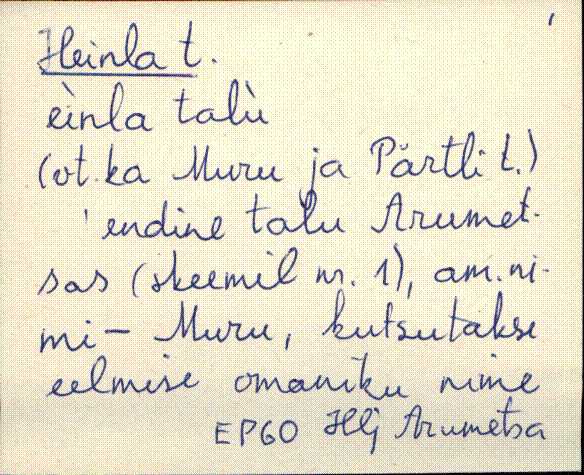 Heinla t.
èinla talù
(vt. ka Muru ja Pärtli t.)
'endine talu Arumet-
sas (skeemil nr. 1), am. ni-
mi – Muru, kutsutakse
eelmise omaniku nime
EPGO Hlj Arumetsa